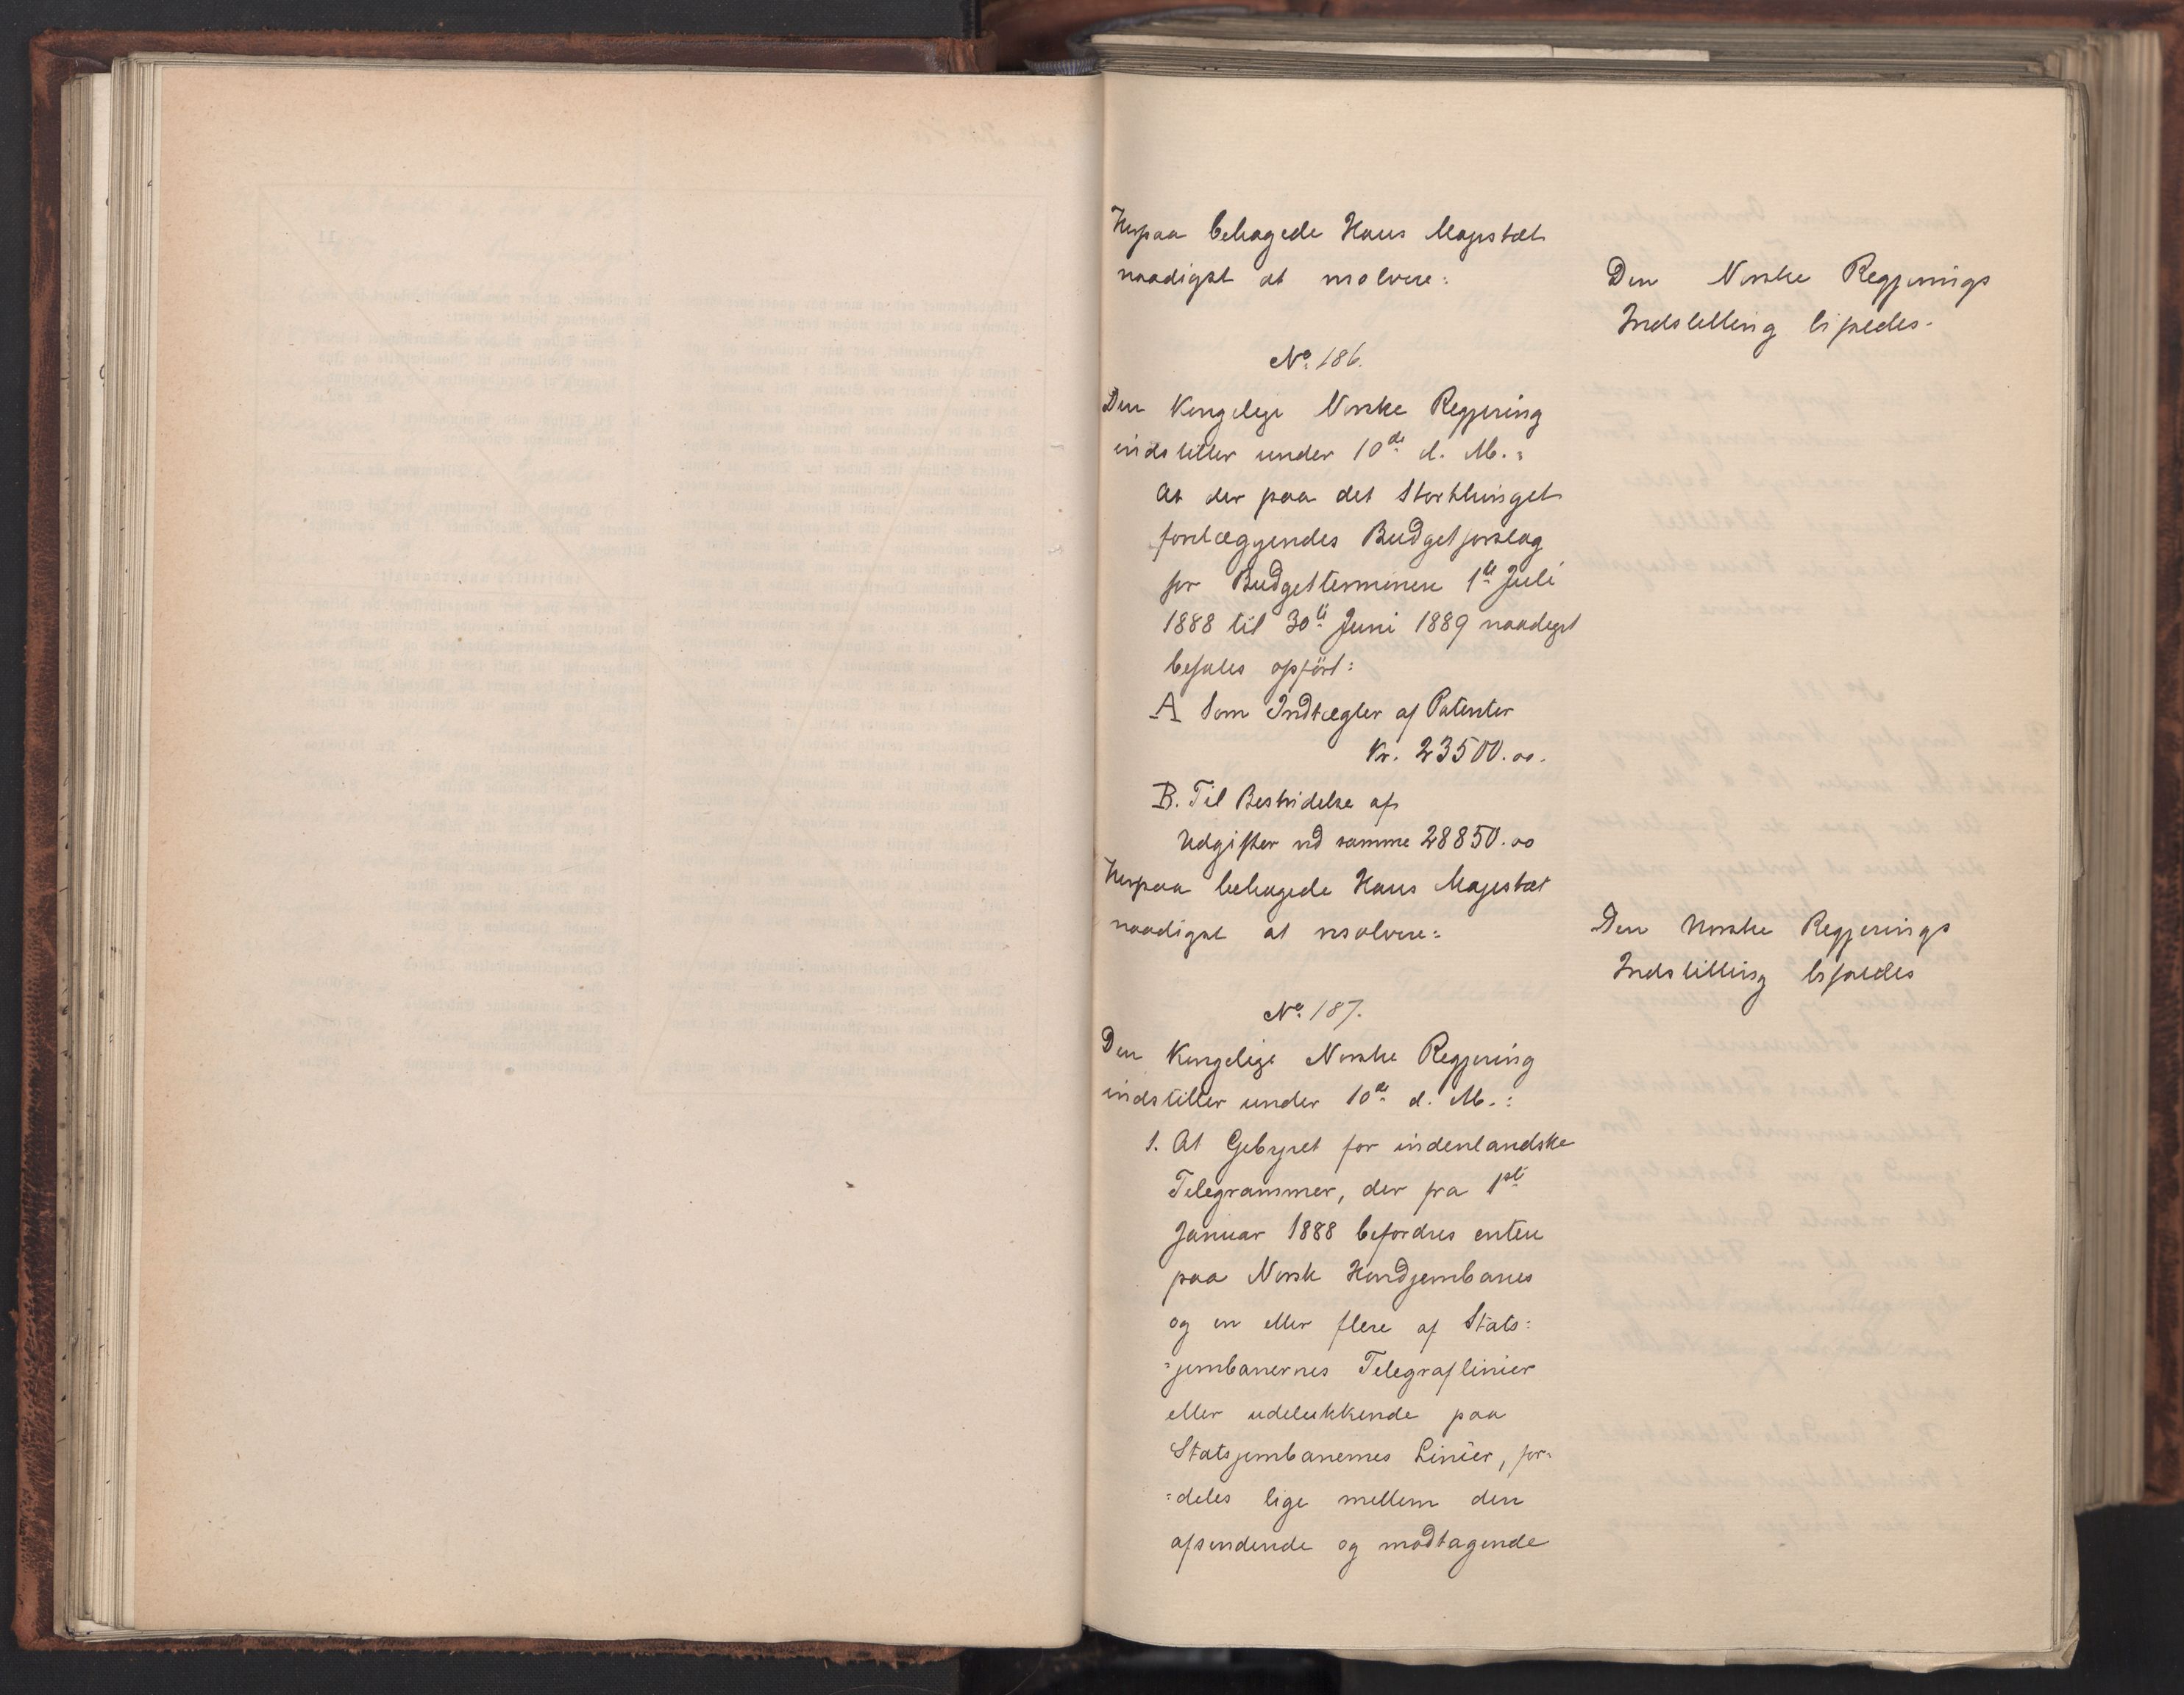 Herpaa behagede Hans Majestæt
naadigst at resolvere:
Den Norske Regjerings
Indstilling bifaldes.
No. 186.
Den Kongelige Norske Regjering
indstiller under 10de d. M.:
At der paa det Storthinget
forelæggendes Budgetforslag
for Budgetterminen 1ste Juli
1888 til 30te Juni 1889 naadigst
befales opført:
A Som Indtægter af Patenter
Kr. 23500.00.
B. Til Bestridelse af
Udgifter ved samme 28850.00
Herpaa behagede Hans Majestæt
naadigst at resolvere:
Den Norske Regjerings
Indstilling bifaldes
No. 187.
Den Kongelige Norske Regjering
indstiller under 10de d. M.:
1. At Gebyret for indenlandske
Telegrammer, der fra 1ste
Januar 1888 befordres enten
paa Norsk Hovedjernbanes
og en eller flere af Stats:
=jernbanernes Telegraflinier
eller udelukkende paa
Statsjernbanernes Linier, for:
=deles lige mellem den
afsendende og modtagende